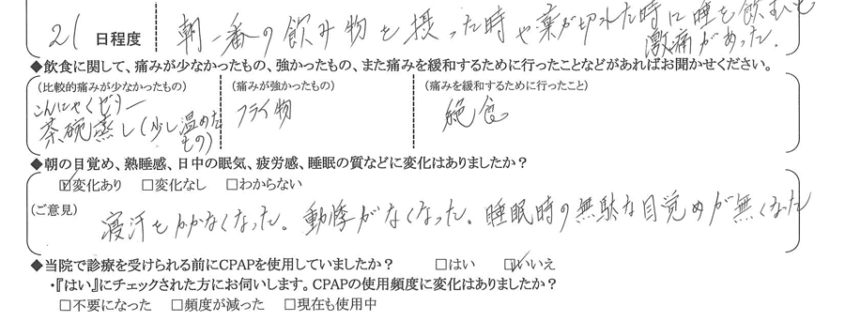 21 日程度 朝一番の飲み物を摂った時や薬が切れた時に唾を飲むと
激痛があった。
◆飲食に関して、痛みが少なかったもの、強かったもの、また痛みを緩和するために行ったことなどがあればお聞かせください。
(比較的痛みが少なかったもの) (痛みが強かったもの) (痛みを緩和するために行ったこと)
こんにゃくゼリー フライ物 絶食
茶碗蒸し(少し温めたもの)
◆朝の目覚め、熟睡感、日中の眠気、疲労感、睡眠の質などに変化はありましたか?
☑変化あり □変化なし □わからない
(ご意見) 寝汗をかかなくなった。動悸がなくなった。睡眠時の無駄な目覚めが無くなった
◆当院で診療を受けられる前にCPAPを使用していましたか? □はい ☑いいえ
・『はい』にチェックされた方にお伺いします。CPAPの使用頻度に変化はありましたか?
□不要になった □頻度が減った □現在も使用中